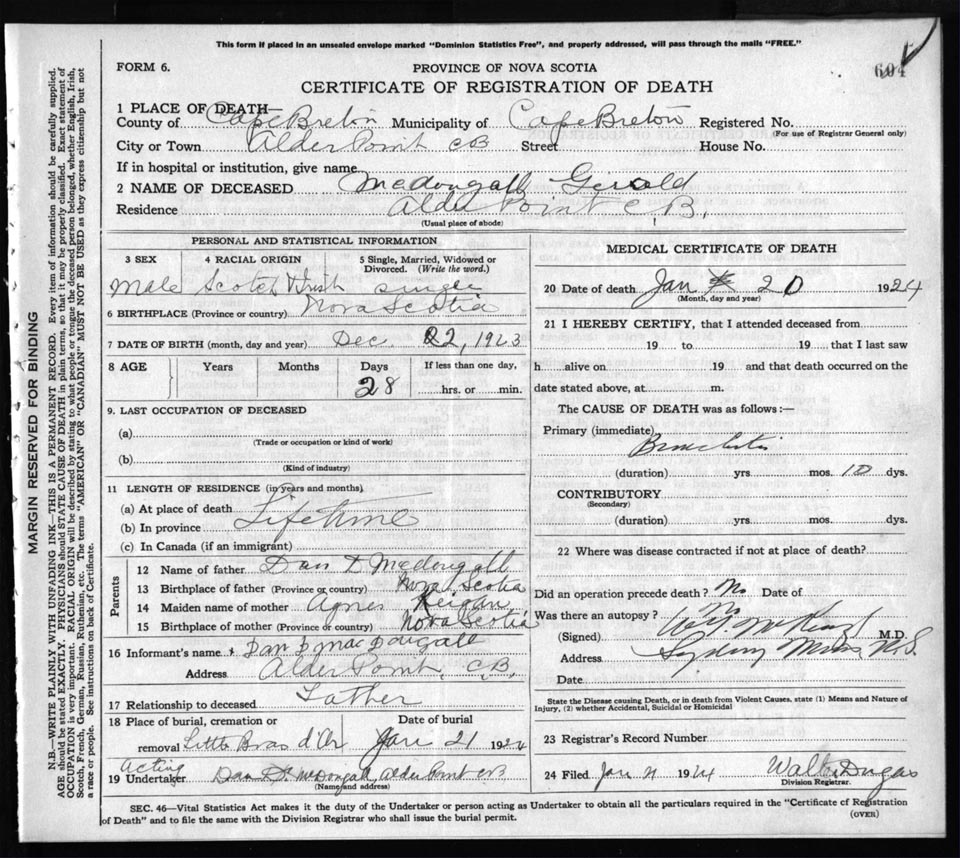 This form if placed in an unsealed envelope marked "Dominion Statistics Free", and properly addressed, will pass through the mails "FREE."
FORM 6.
PROVINCE OF NOVA SCOTIA
604
CERTIFICATE OF REGISTRATION OF DEATH
1 PLACE OF DEATH—
County of Cape Breton Municipality of Cape Breton Registered No.
(For use of Registrar General only)
City or Town Alder Point CB Street House No.
If in hospital or institution, give name
2 NAME OF DECEASED McDougall Gerald
Residence Alder Point C.B.
(Usual place of abode)
PERSONAL AND STATISTICAL INFORMATION
3 SEX 4 RACIAL ORIGIN 5 Single, Married, Widowed or Divorced. (Write the word.)
Male Scotch & Irish single
6 BIRTHPLACE (Province or country) Nova Scotia
7 DATE OF BIRTH (month, day and year) Dec. 22, 1923
8 AGE Years Months Days If less than one day,
28 hrs. or min.
9. LAST OCCUPATION OF DECEASED
(a)
(Trade or occupation or kind of work)
(b)
(Kind of industry)
11 LENGTH OF RESIDENCE (in years and months)
(a) At place of death
(b) In province Lifetime
(c) In Canada (if an immigrant)
Parents
12 Name of father Dan D McDougall
13 Birthplace of father (Province or country) Nova Scotia
14 Maiden name of mother Agnes
15 Birthplace of mother (Province or country) Nova Scotia
16 Informant's name Dan D MacDougall
Address Alder Point, C.B.
17 Relationship to deceased Father
18 Place of burial, cremation or Date of burial
removal Little Bras d'Or Jan 21 1924
Acting
19 Undertaker Dan D. McDougall, Alder Point CB
(Name and address)
MEDICAL CERTIFICATE OF DEATH
20 Date of death Jan 20 1924
(Month, day and year)
21 I HEREBY CERTIFY, that I attended deceased from
19 to 19 that I last saw
h alive on 19 and that death occurred on the
date stated above, at m.
The CAUSE OF DEATH was as follows:—
Primary (immediate)
Bronchitis
(duration) yrs. mos. 10 dys.
CONTRIBUTORY
(Secondary)
(duration) yrs. mos. dys.
22 Where was disease contracted if not at place of death?
Did an operation precede death? No Date of
Was there an autopsy? No
(Signed) M.D.
Address Sydney Mines, N.S.
Date
State the Disease causing Death, or in death from Violent Causes, state (1) Means and Nature of
Injury, (2) whether Accidental, Suicidal or Homicidal
23 Registrar's Record Number
24 Filed Jan 21 1924 Walter Dugas
Division Registrar.
SEC. 46—Vital Statistics Act makes it the duty of the Undertaker or person acting as Undertaker to obtain all the particulars required in the "Certificate of Registration
of Death" and to file the same with the Division Registrar who shall issue the burial permit.
(OVER)
MARGIN RESERVED FOR BINDING
N.B.—WRITE PLAINLY WITH UNFADING INK—THIS IS A PERMANENT RECORD. Every item of information should be carefully supplied.
AGE should be stated EXACTLY. PHYSICIANS should STATE CAUSE OF DEATH in plain terms, so that it may be properly classified. Exact statement of
OCCUPATION is very important. RACIAL ORIGIN will be described by stating to what people or tongue the deceased person belonged, whether English, Irish,
Scotch, French, German, Russian, Ruthenian, etc. The terms "AMERICAN" OR "CANADIAN" MUST NOT BE USED as they express citizenship but not
a race or people. See instructions on back of Certificate.